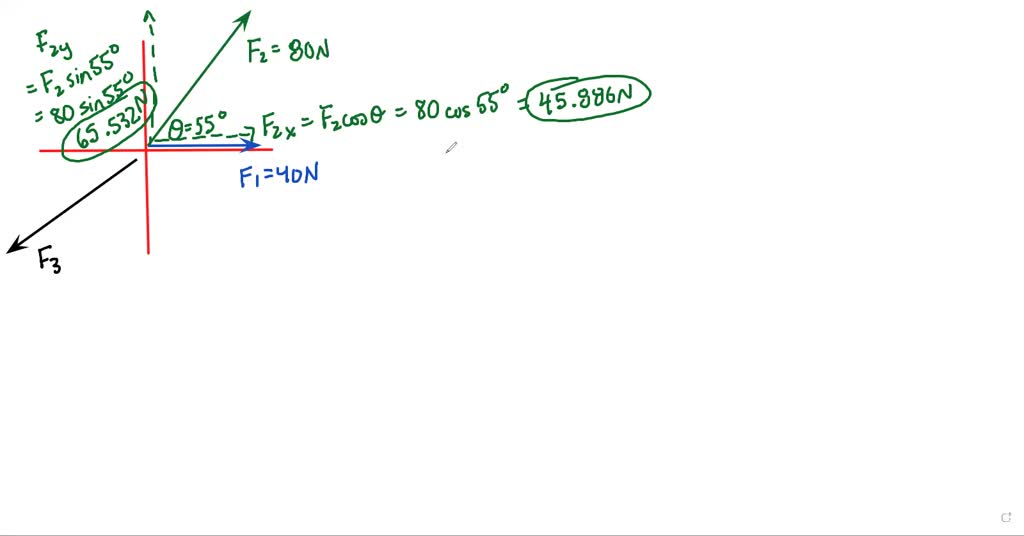 F₂y
= F₂ sin55°
= 80 sin55°
65.532N
F₂ = 80N
θ=55°
F₂x = F₂cosθ = 80 cos 55° = 45.886N
F₁=40N
F₃